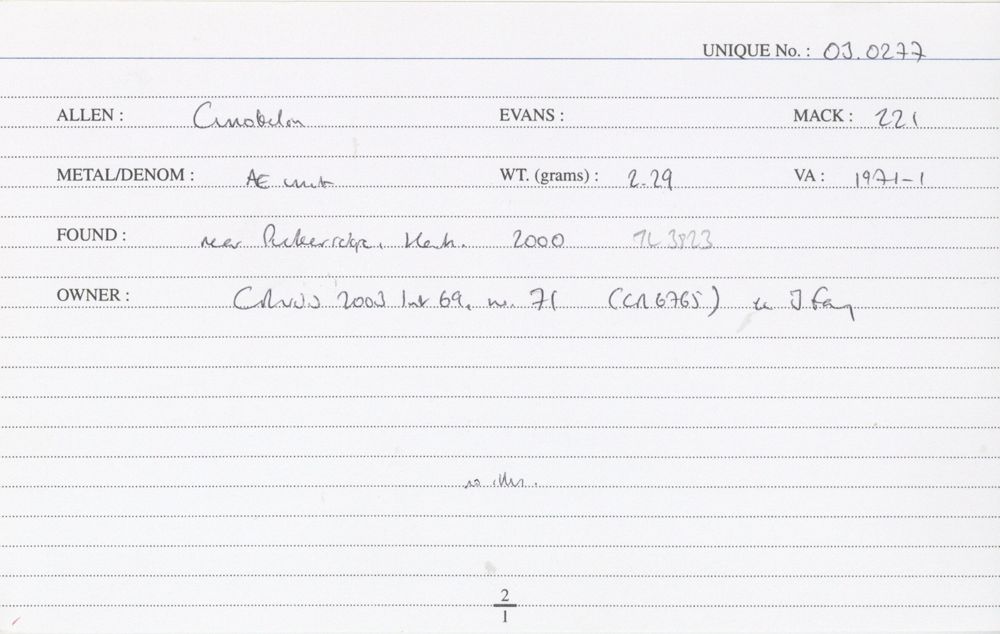 UNIQUE No. : 03.0277
ALLEN : Cunobelin EVANS : MACK : 221
METAL/DENOM : AE unit WT. (grams) : 2.29 VA : 1971-1
FOUND : near Puckeridge, Herts. 2000 TL 3823
OWNER : 2003 list 69, no. 71 (CR 6765)
no illus.
2
1